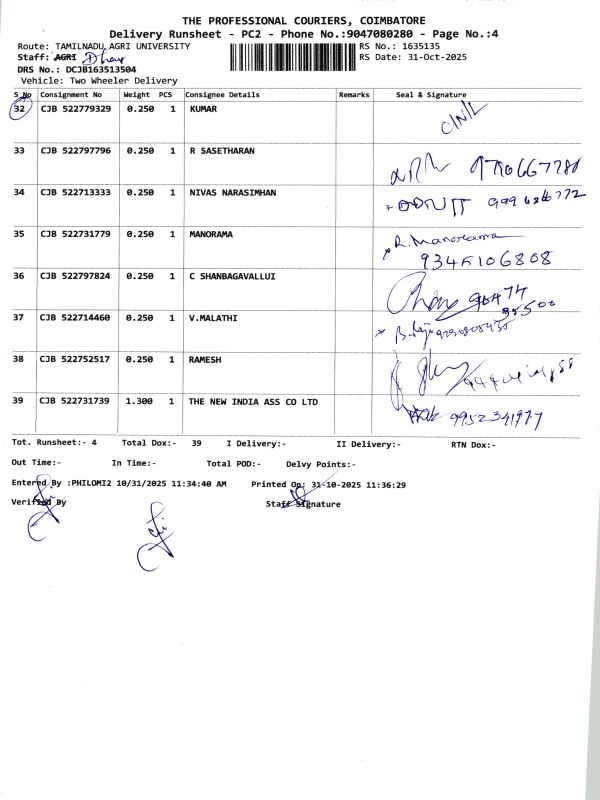 THE PROFESSIONAL COURIERS, COIMBATORE
Delivery Runsheet - PC2 - Phone No.:9047080280 - Page No.:4
Route: TAMILNADU AGRI UNIVERSITY
RS No.: 1635135
Staff: AGRI
RS Date: 31-Oct-2025
DRS No.: DCJB163513504
Vehicle: Two Wheeler Delivery
S No Consignment No Weight PCS Consignee Details Remarks Seal & Signature
32 CJB 522779329 0.250 1 KUMAR
33 CJB 522797796 0.250 1 R SASETHARAN
34 CJB 522713333 0.250 1 NIVAS NARASIMHAN
35 CJB 522731779 0.250 1 MANORAMA R. Manorama
9345106808
36 CJB 522797824 0.250 1 C SHANBAGAVALLUI
37 CJB 522714460 0.250 1 V.MALATHI
38 CJB 522752517 0.250 1 RAMESH
39 CJB 522731739 1.300 1 THE NEW INDIA ASS CO LTD 9952341977
Tot. Runsheet:- 4 Total Dox:- 39 I Delivery:- II Delivery:- RTN Dox:-
Out Time:- In Time:- Total POD:- Delvy Points:-
Entered By :PHILOMI2 10/31/2025 11:34:40 AM Printed On: 31-10-2025 11:36:29
Verified By Staff Signature